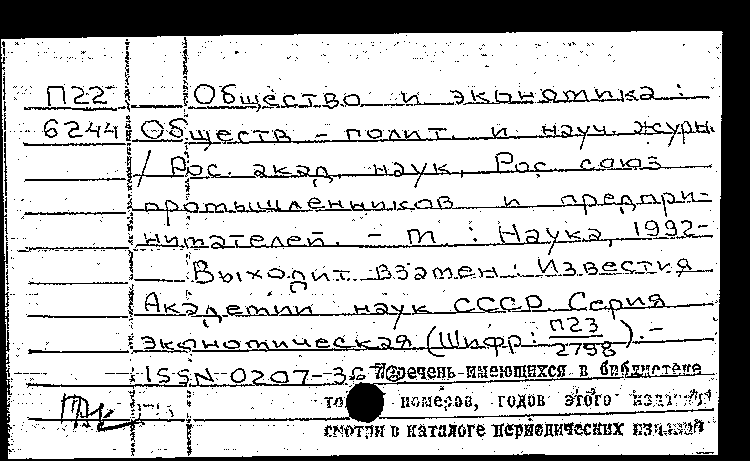 П22 Общество и экономика :
6244 Обществ - полит. и науч. журн.
/ Рос. акад. наук, Рос союз
промышленников и предпри-
нимателей. - М : Наука, 1992-
Выходит взамен: Известия
Академии наук СССР. Серия
экономическая (Шифр: П23/2798). -
ISSN 0207-36 Перечень имеющихся в библиотеке
номеров, годов этого издания
смотри в каталоге периодических изданий